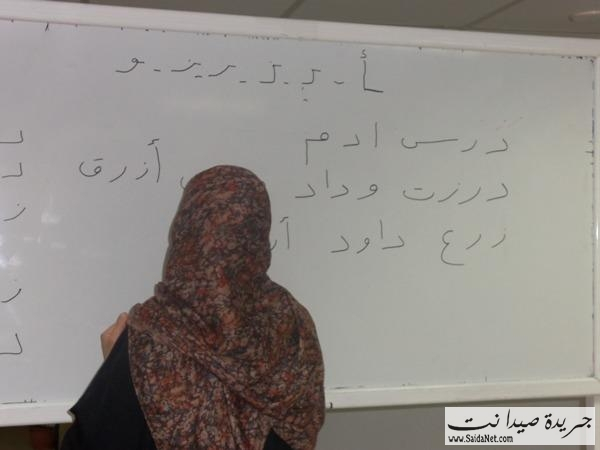 أ - د - ذ - ر - ز - و
درس ادم
أزرق
درزت وداد
زرع داود
جريدة صيدا نت
www.SaidaNet.com